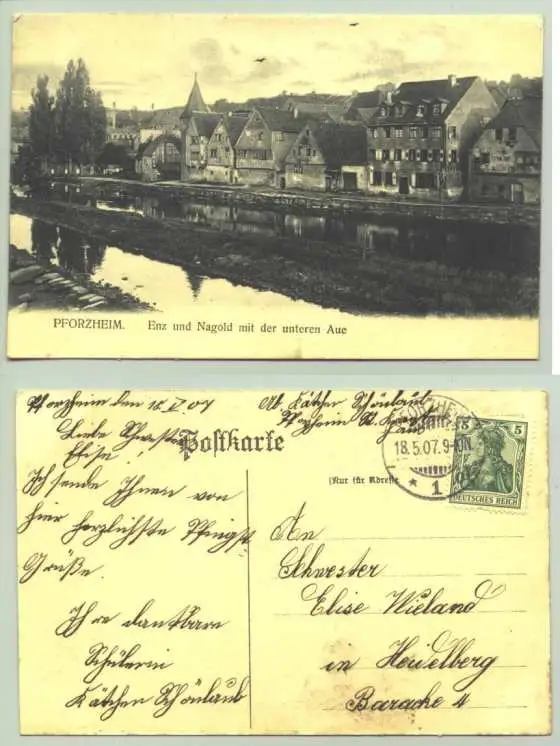 PFORZHEIM. Enz und Nagold mit der unteren Aue
Pforzheim den 18. V. 07
Ab. Kätchen Schönlaub
Pforzheim
Liebe Schwester
Elise!
Postkarte
(Nur für Adresse
PFORZHEIM
18.5.07.9-10N.
* 1
5 5
DEUTSCHES REICH
Ich sende Ihnen von
hier herzlichste Pfingst
Grüße.
Ihre dankbare
Schülerin
Kätchen Schönlaub
An
Schwester
Elise Wieland
in Heidelberg
Barache 4